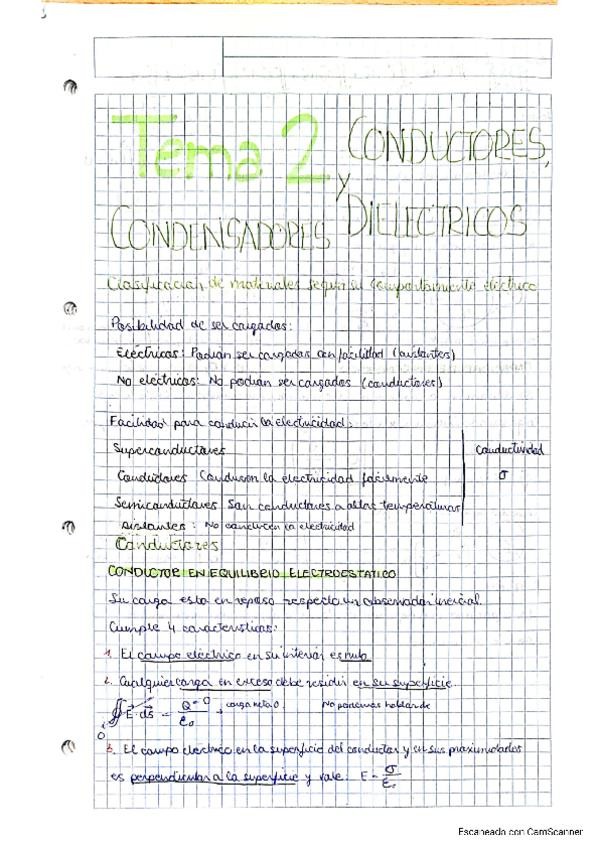 Tema 2 CONDUCTORES,
CONDENSADORES y DIELECTRICOS
Clasificacion de materiales segun su comportamiento electrico
Posibilidad de ser cargados:
Eléctricas: Podian ser cargados con facilidad (aislantes)
No electricos: No podian ser cargados (conductores)
Facilidad para conducir la electricidad:
Superconductores Conductividad
Conductores Conducen la electricidad facilmente σ
Semiconductores San conductores a altas temperaturas
Aislantes: No conducen la electricidad
Conductores
CONDUCTOR EN EQUILIBRIO ELECTROESTATICO
Su carga esta en reposo respecto un observador inercial.
Cumple 4 caracteristicas:
1. El campo eléctrico en su interior es nulo
2. Cualquier carga en exceso debe residir en su superficie.
∯ E·ds = Q=0/ε₀ → carga neta 0. No podemos hablar de
0
3. El campo electrico en la superficie del conductor y en sus proximidades
es perpendicular a la superficie y vale: E = σ/ε₀
Escaneado con CamScanner